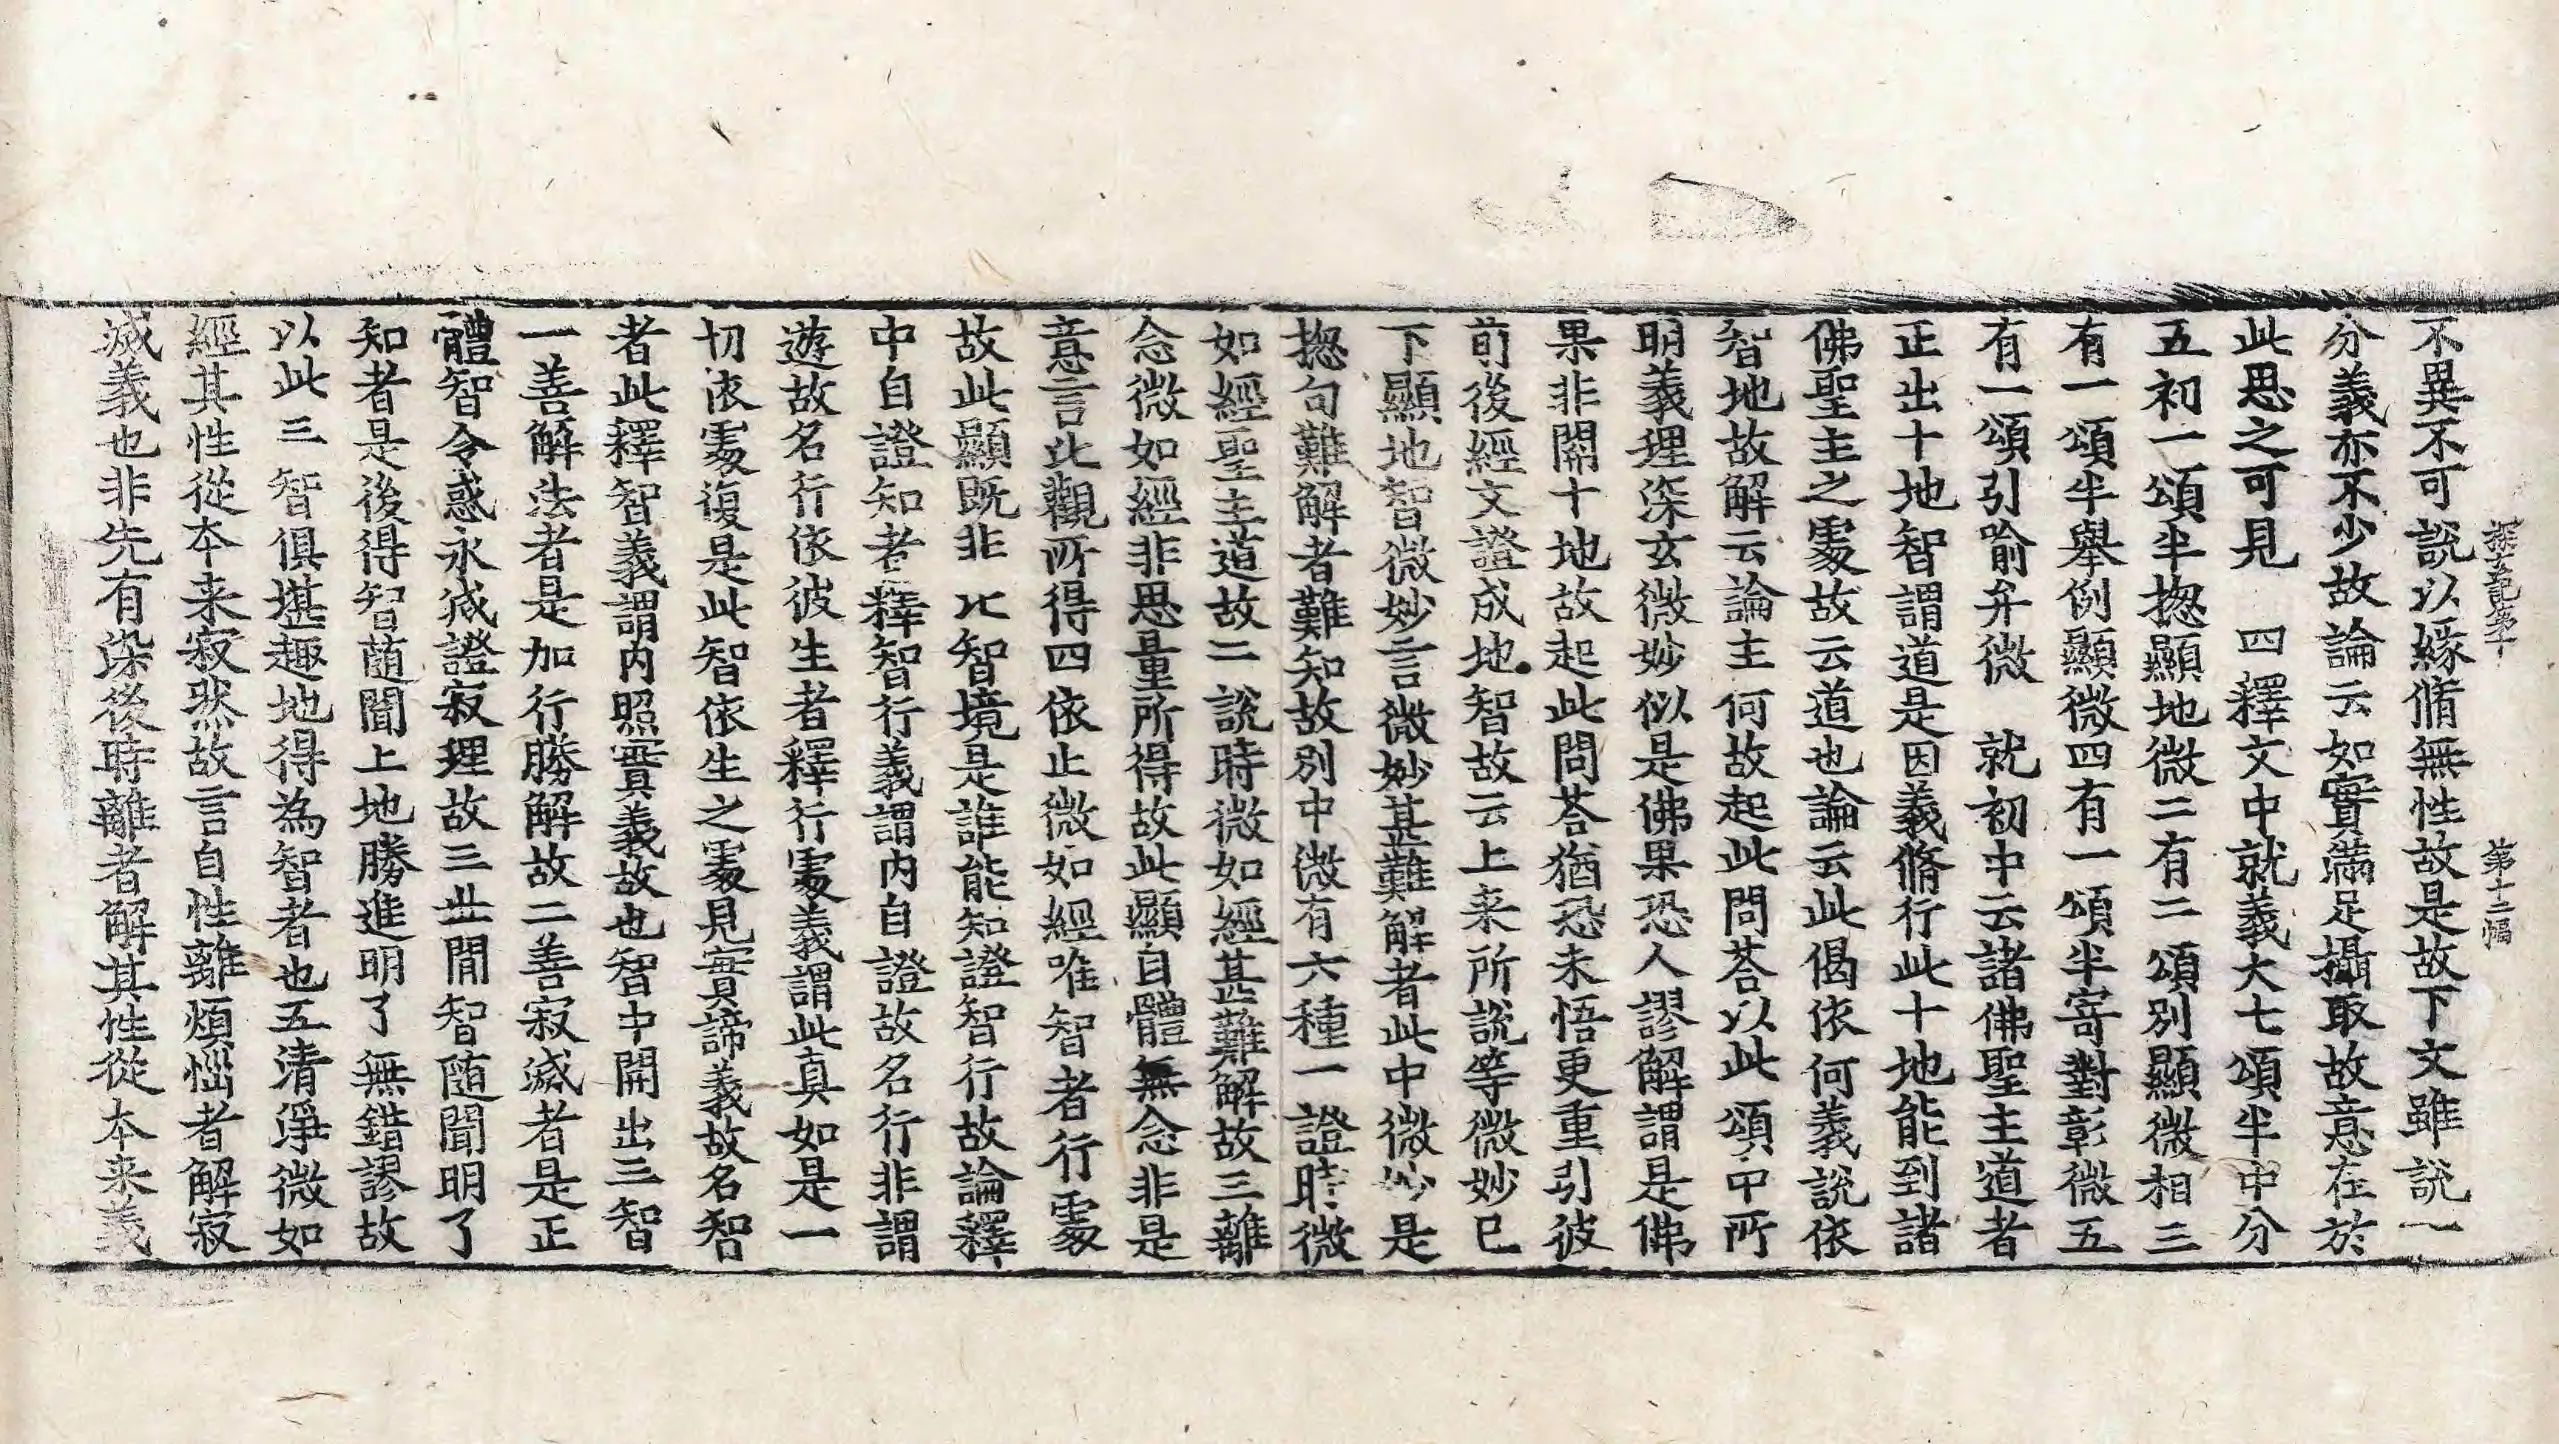 探玄記第十 第十三幅
不異不可說以緣脩無性故是故下文雖說一
分義亦不少故論云如實滿足攝取故意在於
此思之可見 四釋文中就義大七頌半中分
五初一頌半揔顯地微二有二頌別顯微相三
有一頌半舉例顯微四有一頌半寄對彰微五
有一頌引喻弁微 就初中云諸佛聖主道者
正出十地智謂道是因義脩行此十地能到諸
佛聖主之處故云道也論云此偈依何義說依
智地故解云論主何故起此問荅以此頌中所
明義理深玄微妙似是佛果恐人謬解謂是佛
果非關十地故起此問荅猶恐未悟更重引彼
前後經文證成地智故云上来所說等微妙已
下顯地智微妙言微妙甚難解者此中微妙是
揔句難解者難知故別中微有六種一證時微
如經聖主道故二說時微如經甚難解故三離
念微如經非思量所得故此顯自體無念非是
意言比觀所得四依止微如經唯智者行處
故此顯既非比智境是誰能知證智行故論釋
中自證知者釋智行義謂内自證故名行非謂
遊故名行依彼生者釋行處義謂此真如是一
切依處復是此智依生之處見實諦義故名智
者此釋智義謂内照實義故也智中開出三智
一善解法者是加行勝解故二善寂滅者是正
體智令惑永滅證寂理故三世間智随聞明了
知者是後得智随聞上地勝進明了無錯謬故
以此三智俱堪趣地得為智者也五清淨微如
經其性從本来寂然故言自性離煩惱者解寂
滅義也非先有染後時離者解其性從本来義